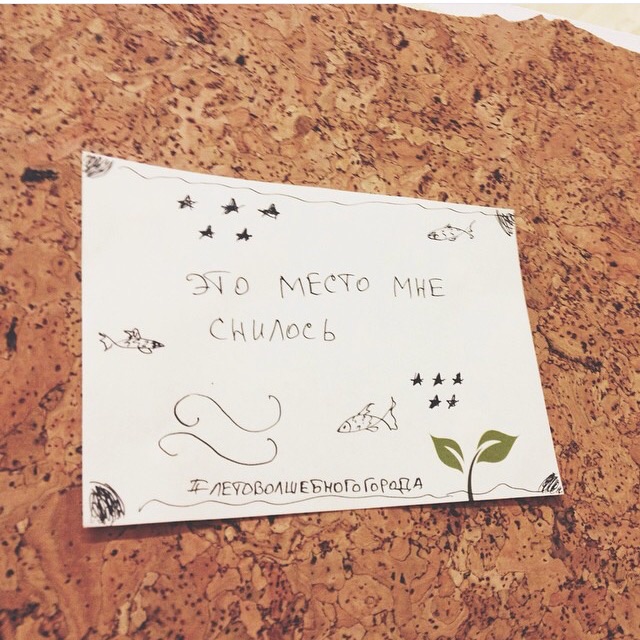 ЭТО МЕСТО МНЕ
СНИЛОСЬ
#ЛЕТОВОЛШЕБНОГОГОРОДА